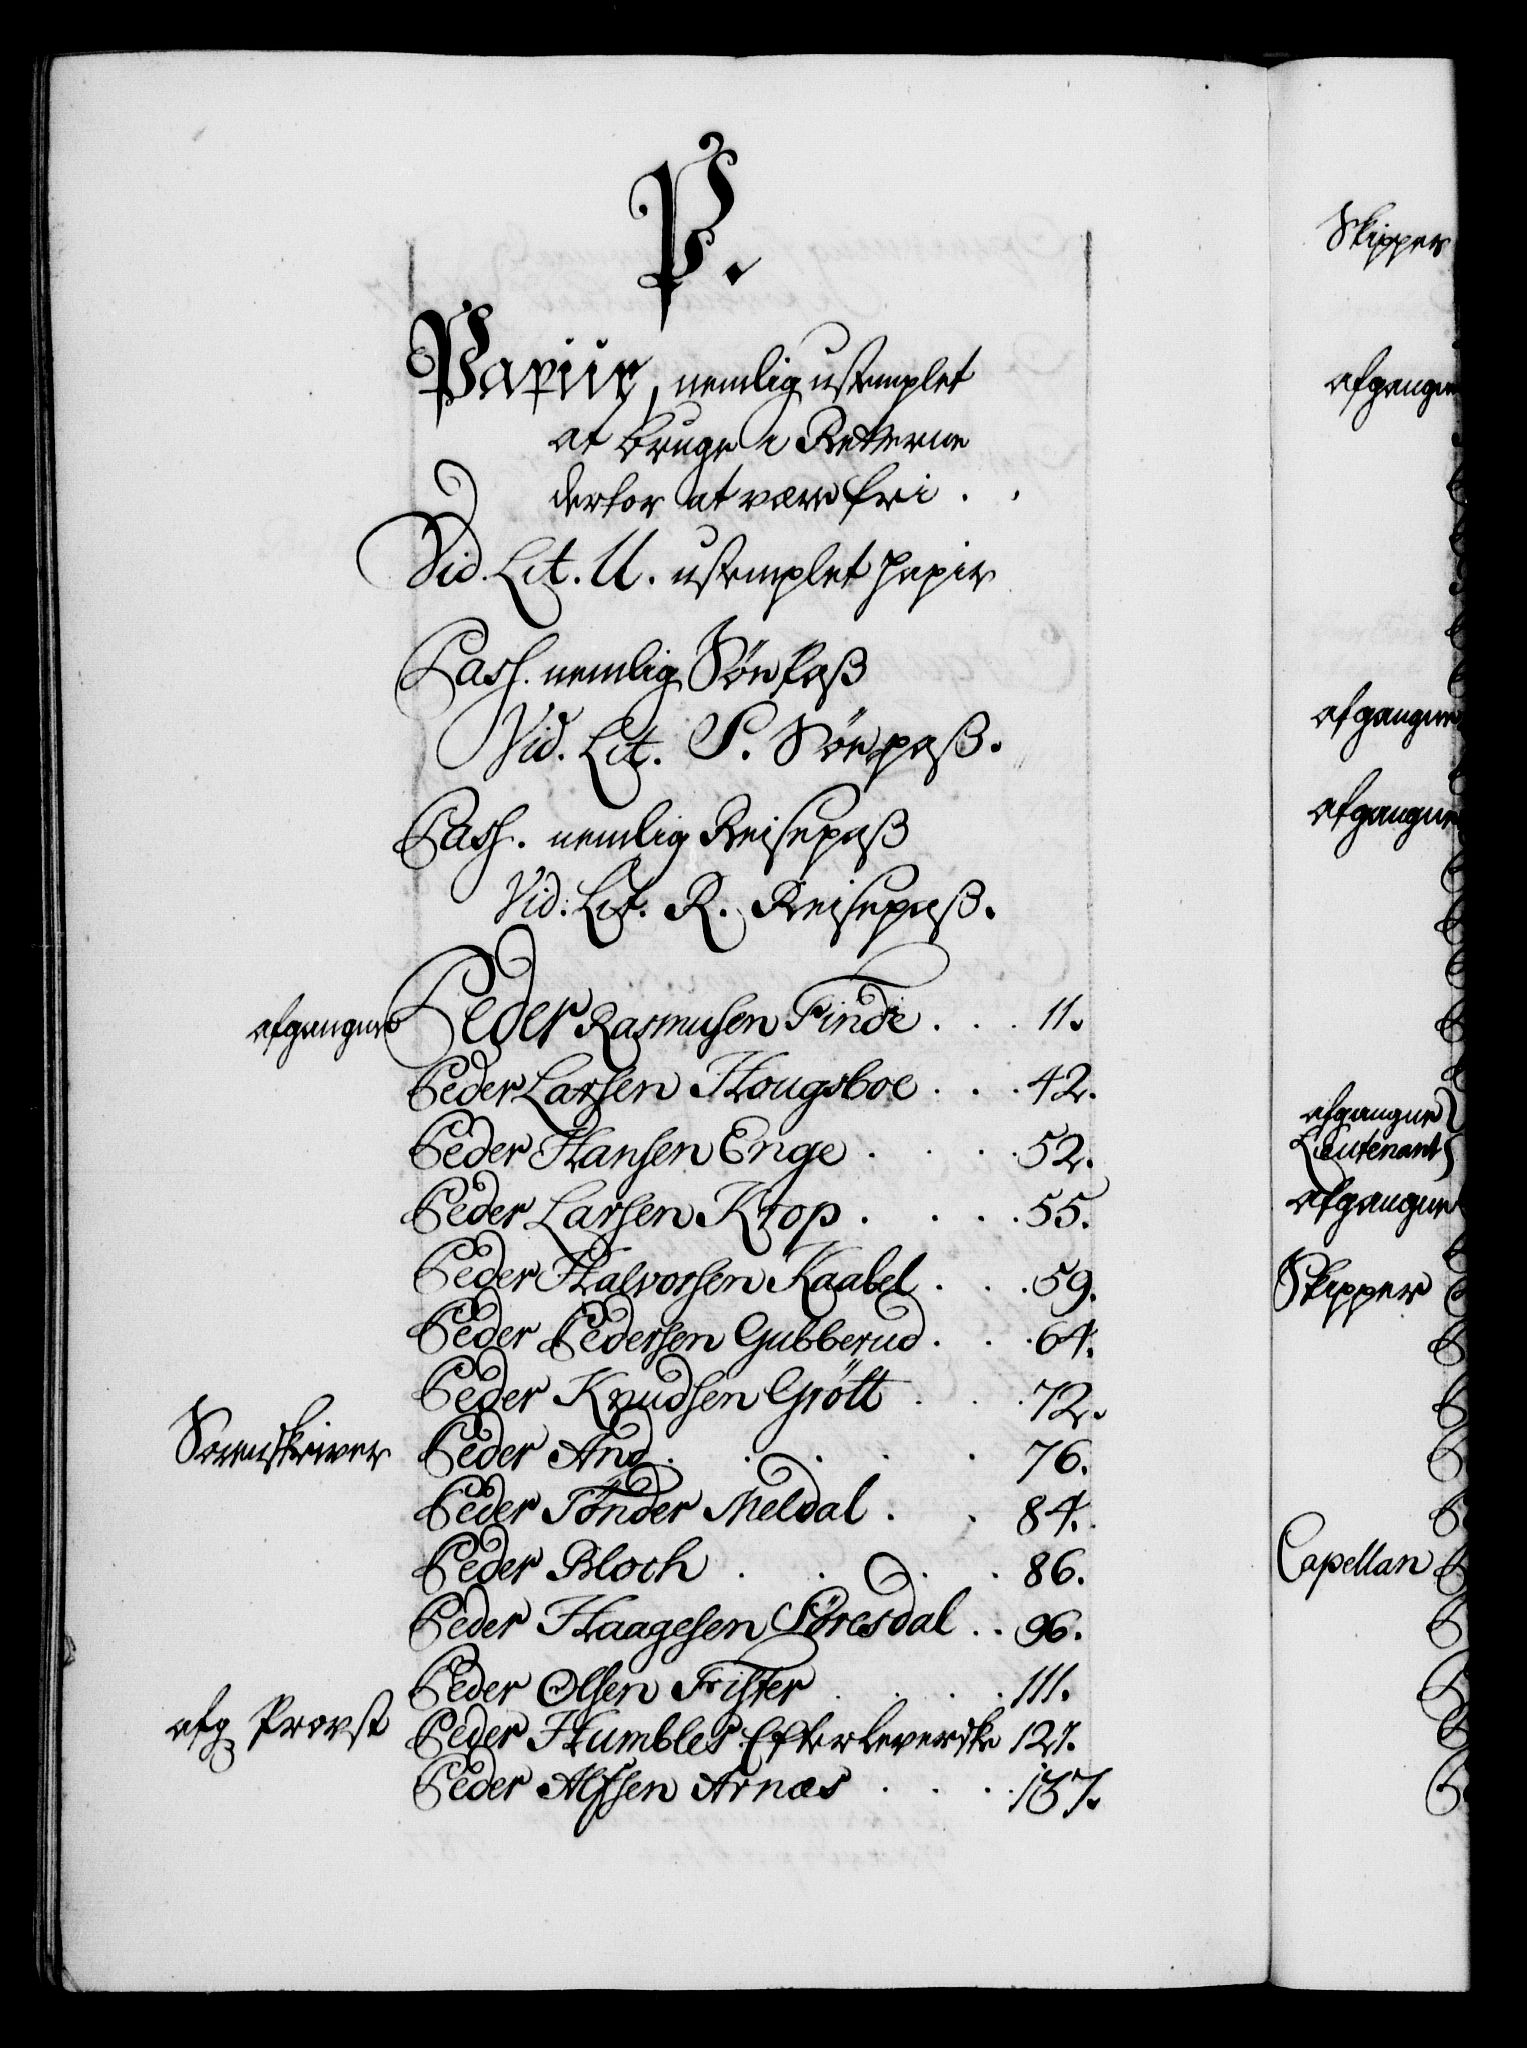 P.
Papiir, nemlig ustemplet
at bruge i Retterne
derfor at være fri . .
Vid. Lit. U. ustemplet Papir
Pass. nemlig Söe Paß
Vid. Lit. S. Söepaß.
Pass. nemlig Reisepaß
Vid. Lit. R. Reisepaß.
afgangne Peder Rasmusen Finde . . . 11.
Peder Larsen Hougsboe . . . 42.
Peder Hansen Enge . . . . 52.
Peder Larsen Krop . . . . 55.
Peder Halvorsen Kaabel . . . 59.
Peder Pedersen Gubberud . . . 64.
Peder Knudsen Grött . . . 72.
Sorenskriver Peder And . . . . . 76.
Peder Tönder Meldal . . 84.
Peder Bloch . . . . 86.
Peder Haagesen Föresdal . . 96.
Peder Olsen Frister . . . . 111.
afg Provst Peder Humbles Efterleverske 121.
Peder Alfsen Arnæs . . . . 137.
Skipper
afgangne
afgangne
afgangne
afgangne
Lieutenant
afgangne
Skipper
Capellan